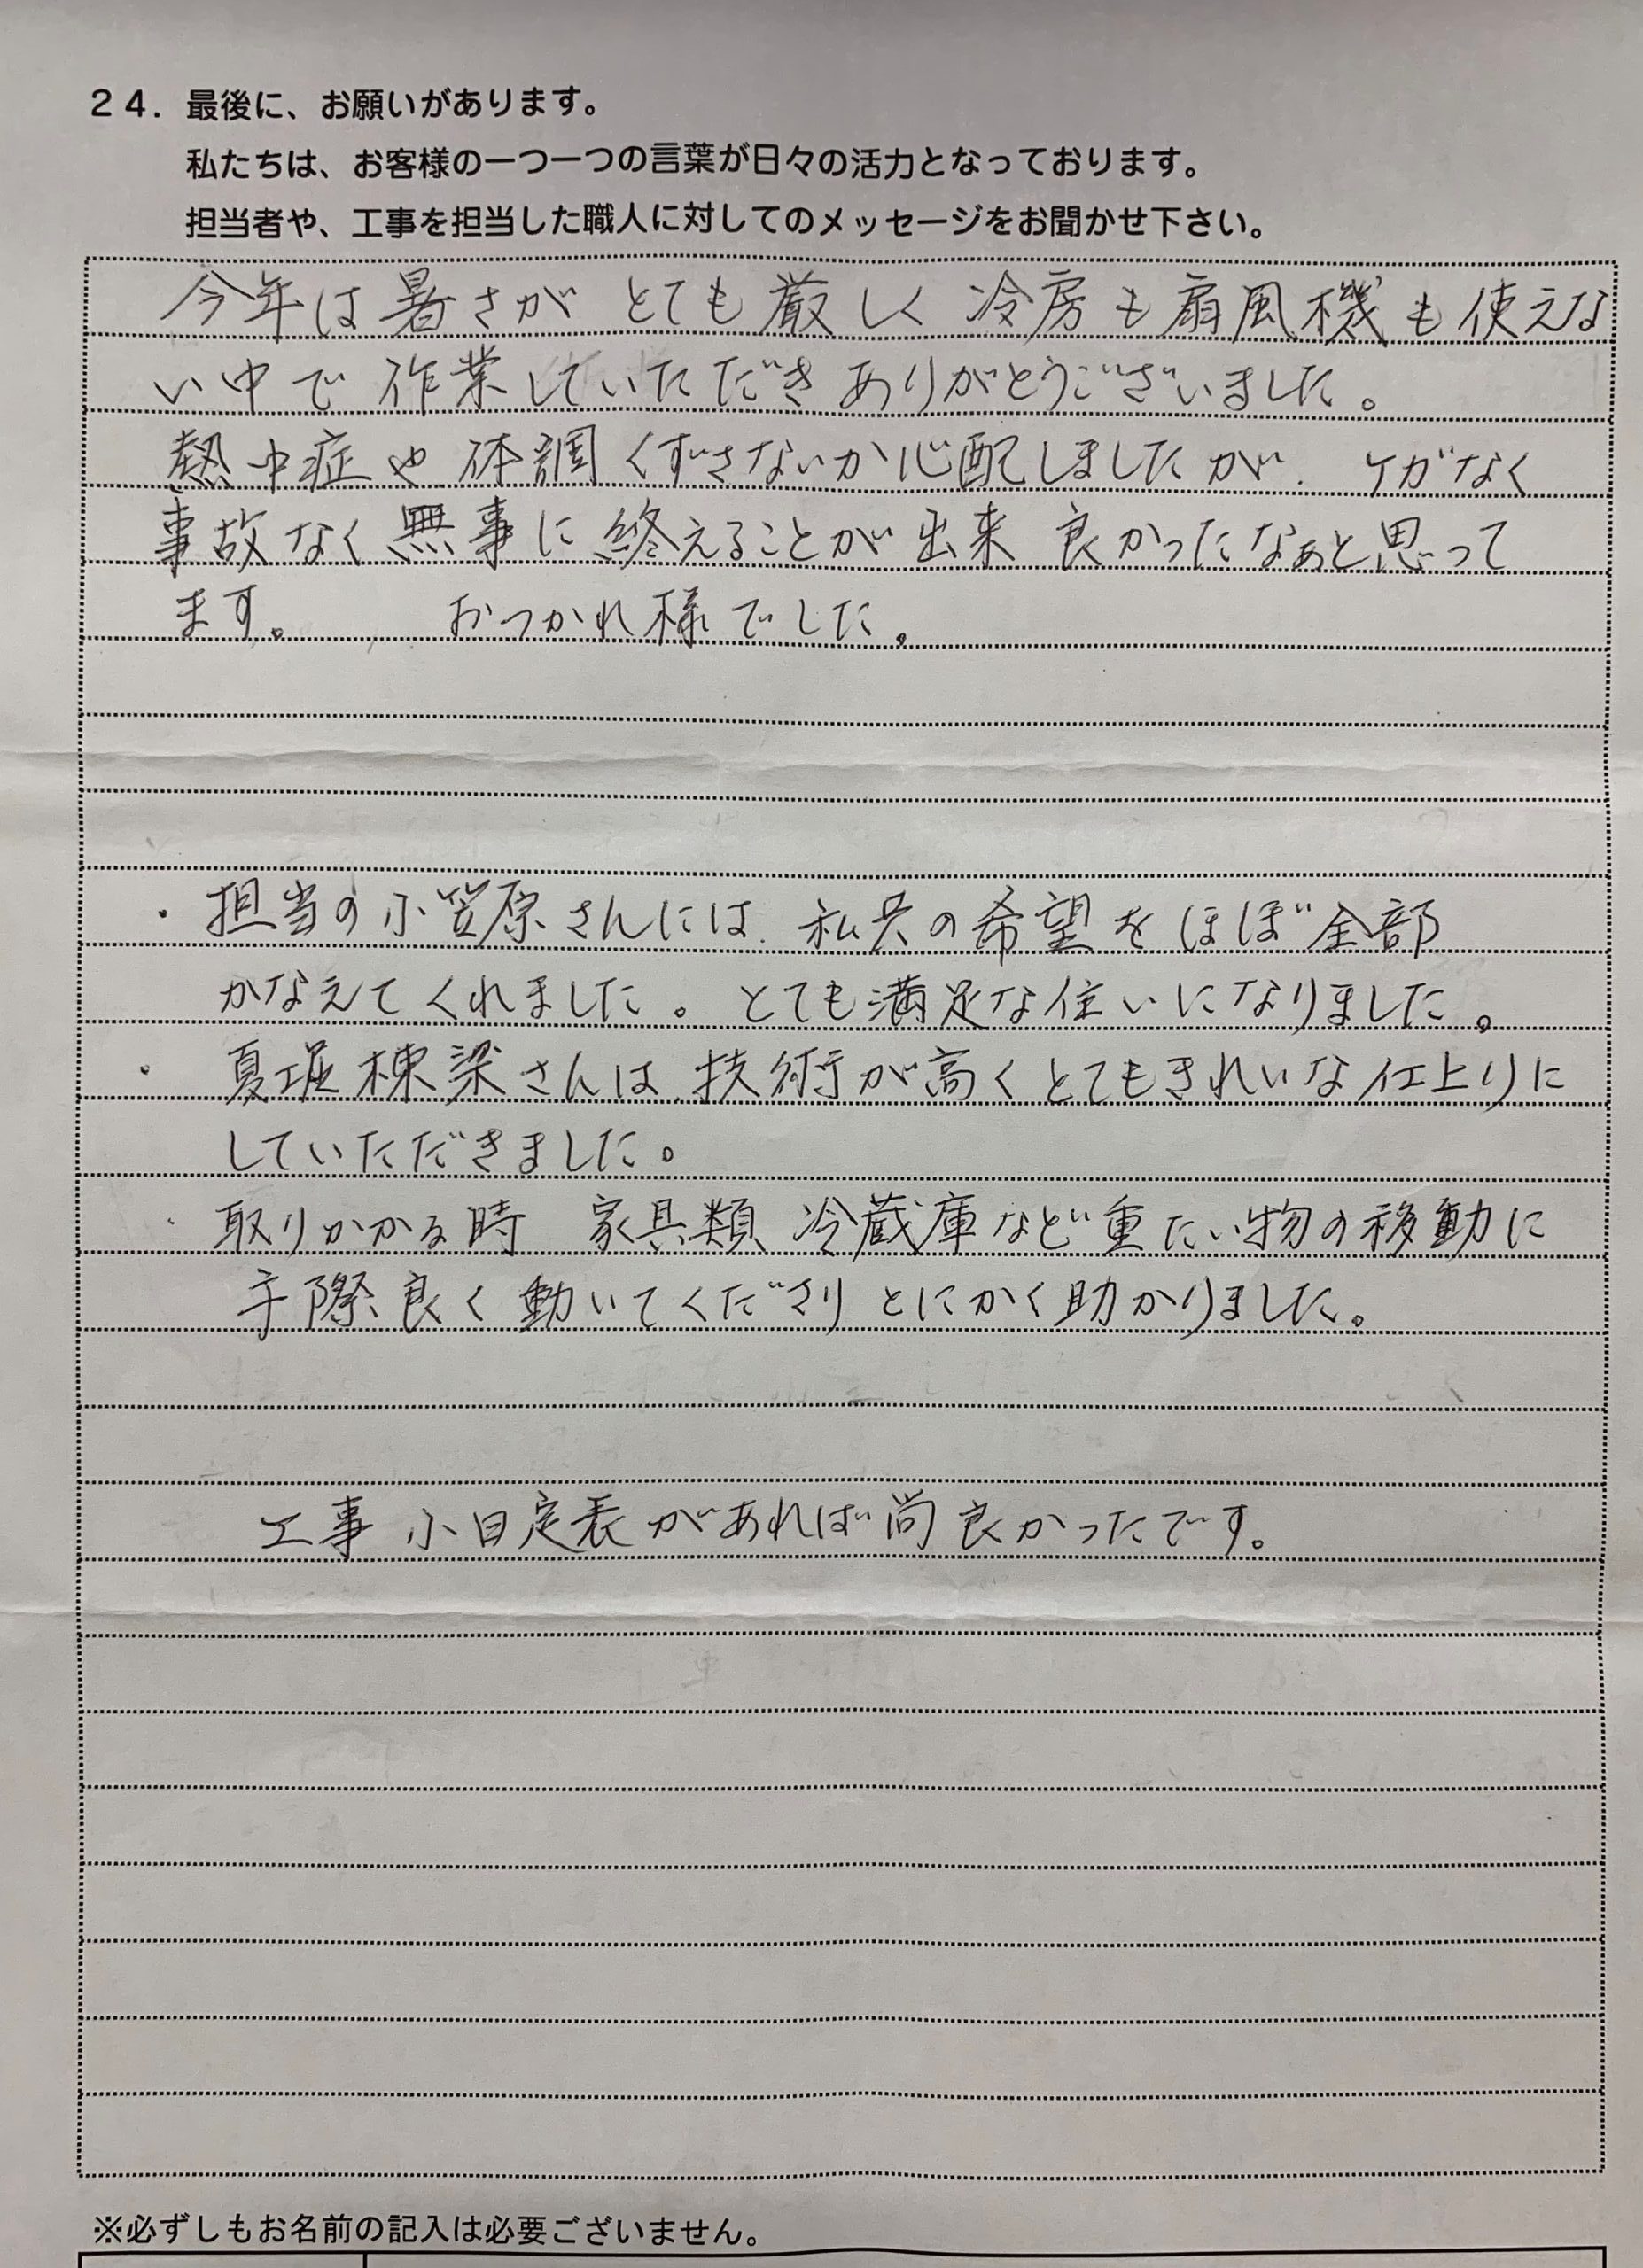 ２４．最後に、お願いがあります。
私たちは、お客様の一つ一つの言葉が日々の活力となっております。
担当者や、工事を担当した職人に対してのメッセージをお聞かせ下さい。
今年は暑さが とても厳しく 冷房も扇風機も使えな
い中で 作業していただき ありがとうございました。
熱中症や 体調くずさないか心配しましたが、ケガなく
事故なく無事に 終えることが出来 良かったなぁと思って
ます。 おつかれ様でした。
・担当の小笠原さんには、私共の希望をほぼ全部
かなえてくれました。とても満足な住いになりました。
・夏堀棟梁さんは、技術が高くとてもきれいな仕上りに
していただきました。
・取りかかる時 家具類 冷蔵庫など重たい物の移動に
手際良く動いてくださり とにかく助かりました。
工事 小日定表があれば尚良かったです。
※必ずしもお名前の記入は必要ございません。